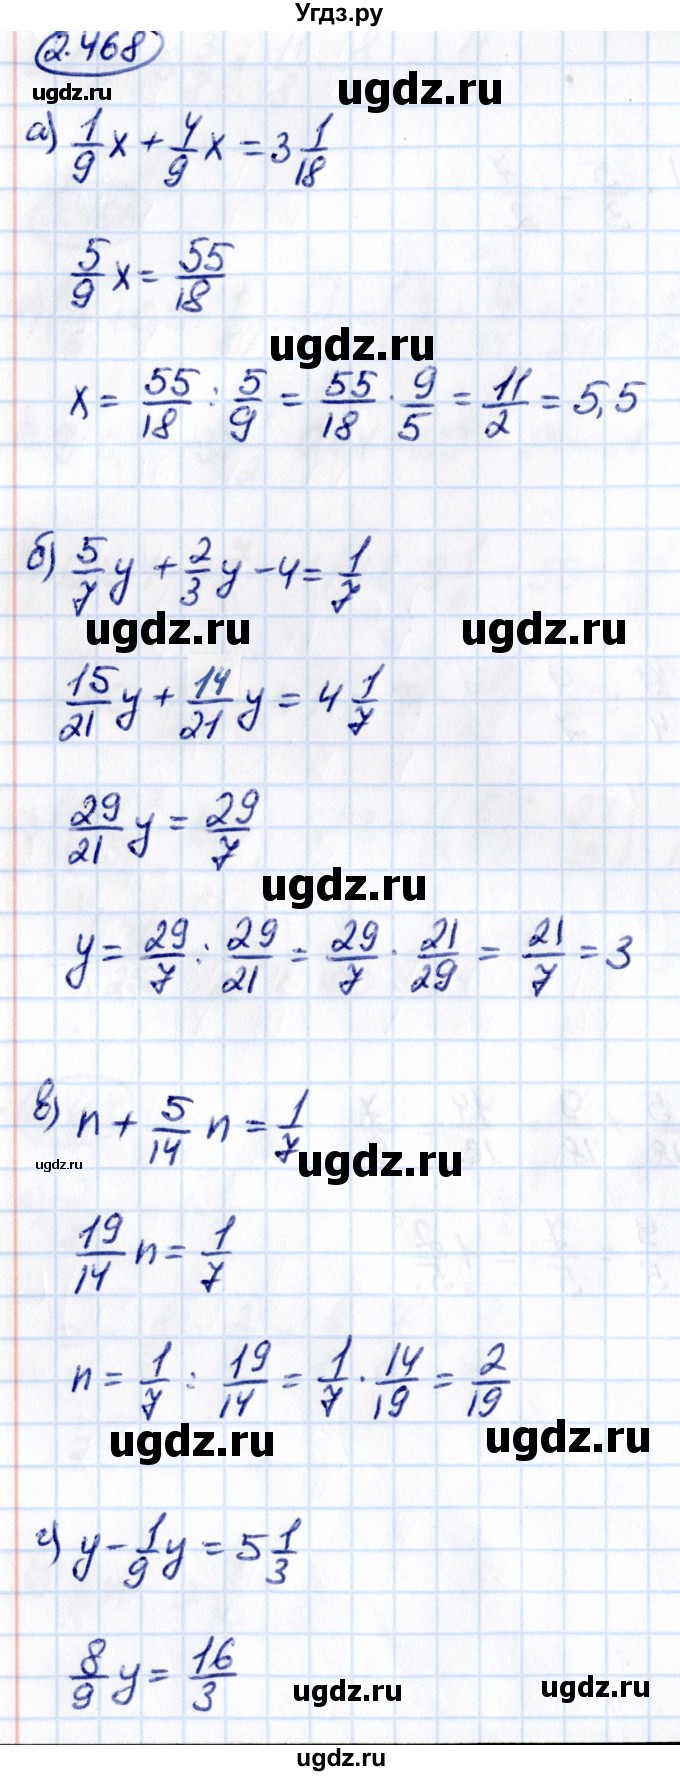 Угдз.ру
2.468
ugdz.ru ugdz.ru
а) 1/9 x + 4/9 x = 3 1/18
5/9 x = 55/18
ugdz.ru
x = 55/18 : 5/9 = 55/18 · 9/5 = 11/2 = 5,5
б) 5/7 y + 2/3 y - 4 = 1/7
ugdz.ru ugdz.ru
15/21 y + 14/21 y = 4 1/7
29/21 y = 29/7
ugdz.ru
y = 29/7 : 29/21 = 29/7 · 21/29 = 21/7 = 3
в) n + 5/14 n = 1/7
ugdz.ru ugdz.ru
19/14 n = 1/7
n = 1/7 : 19/14 = 1/7 · 14/19 = 2/19
ugdz.ru ugdz.ru
г) y - 1/9 y = 5 1/3
8/9 y = 16/3
ugdz.ru ugdz.ru
ugdz.ru